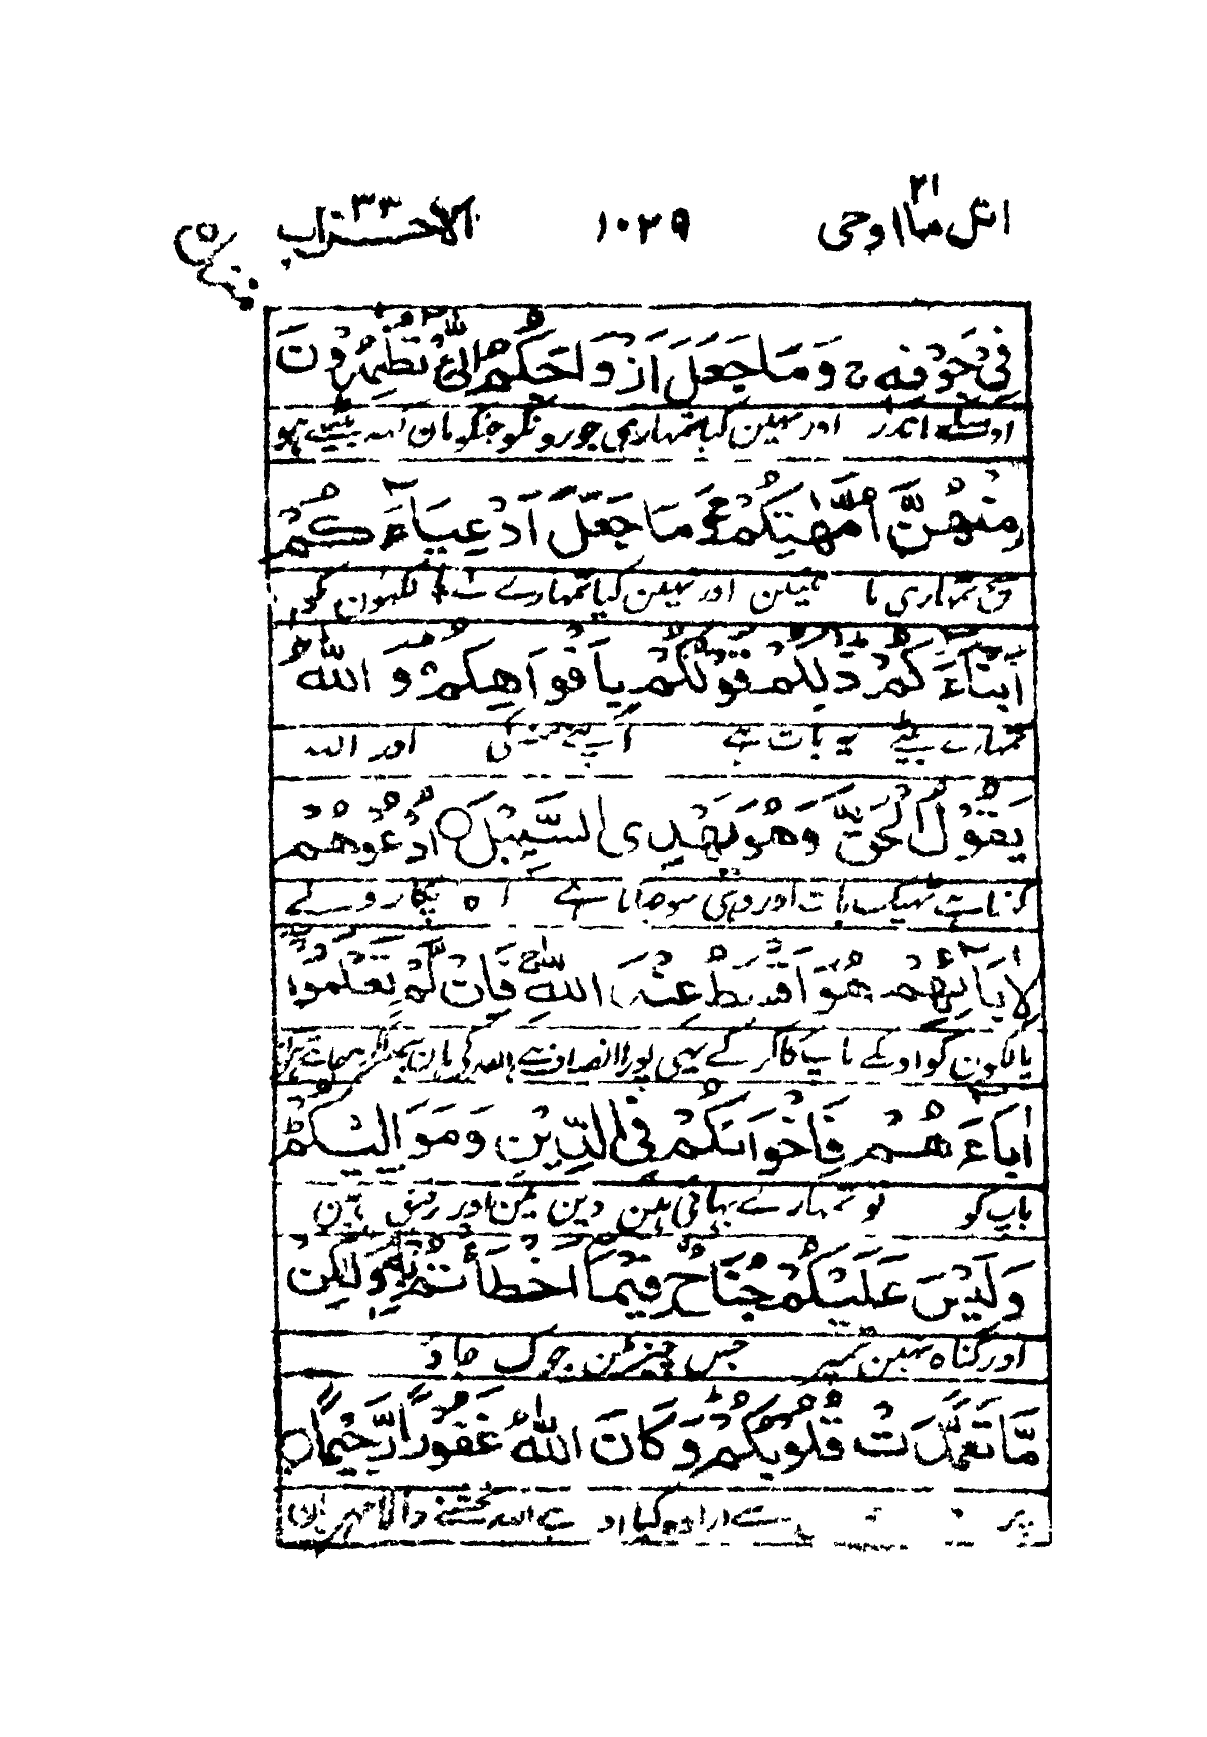 اتل ما اوحی ۲۱ ۱۰۲۹ الاحزاب ۳۳
فِیْ جَوْفِهٖ ج وَمَا جَعَلَ اَزْوَاجَكُمُ الّٰٓئِیْ تُظٰهِرُوْنَ
اوسکے اندر اور نہین کیا تمہاری جوروؤنکو جنکو مان کہہ بیٹھے ہو
مِنْهُنَّ اُمَّهٰتِكُمْ ج وَمَا جَعَلَ اَدْعِیَآءَكُمْ
سچ تمہاری ما ئین اور نہین کیا تمہارے لے پالکون کو
اَبْنَآءَكُمْ ذٰلِكُمْ قَوْلُكُمْ بِاَفْوَاهِكُمْ وَاللّٰهُ
تمہارے بیٹے یہ بات ہے اپنے منہ کی اور اللہ
یَقُوْلُ الْحَقَّ وَهُوَ یَهْدِی السَّبِیْلَ اُدْعُوْهُمْ
کہتا ہے ٹھیک بات اور وہی سوجہاتا ہے راہ پکارو لے
لِاٰبَآئِهِمْ هُوَ اَقْسَطُ عِنْدَ اللّٰهِ ج فَاِنْ لَّمْ تَعْلَمُوْٓا
پالکون کو اونکے باپ کا کر کے یہی پورا انصاف ہے اللہ کی ہان پھر اگر نہ جانتے
اٰبَآءَهُمْ فَاِخْوَانُكُمْ فِی الدِّیْنِ وَمَوَالِیْكُمْ
باپ کو تو تمہارے بہائی ہین دین مین اور رفیق ہین
وَلَیْسَ عَلَیْكُمْ جُنَاحٌ فِیْمَآ اَخْطَاْتُمْ بِهٖ وَلٰكِنْ
اور گناہ نہین تمپر جس چیز مین چوک جاؤ
مَّا تَعَمَّدَتْ قُلُوْبُكُمْ وَكَانَ اللّٰهُ غَفُوْرًا رَّحِیْمًا
پر سے ارادہ کیا اور ہے اللہ بخشنے والا مہربان